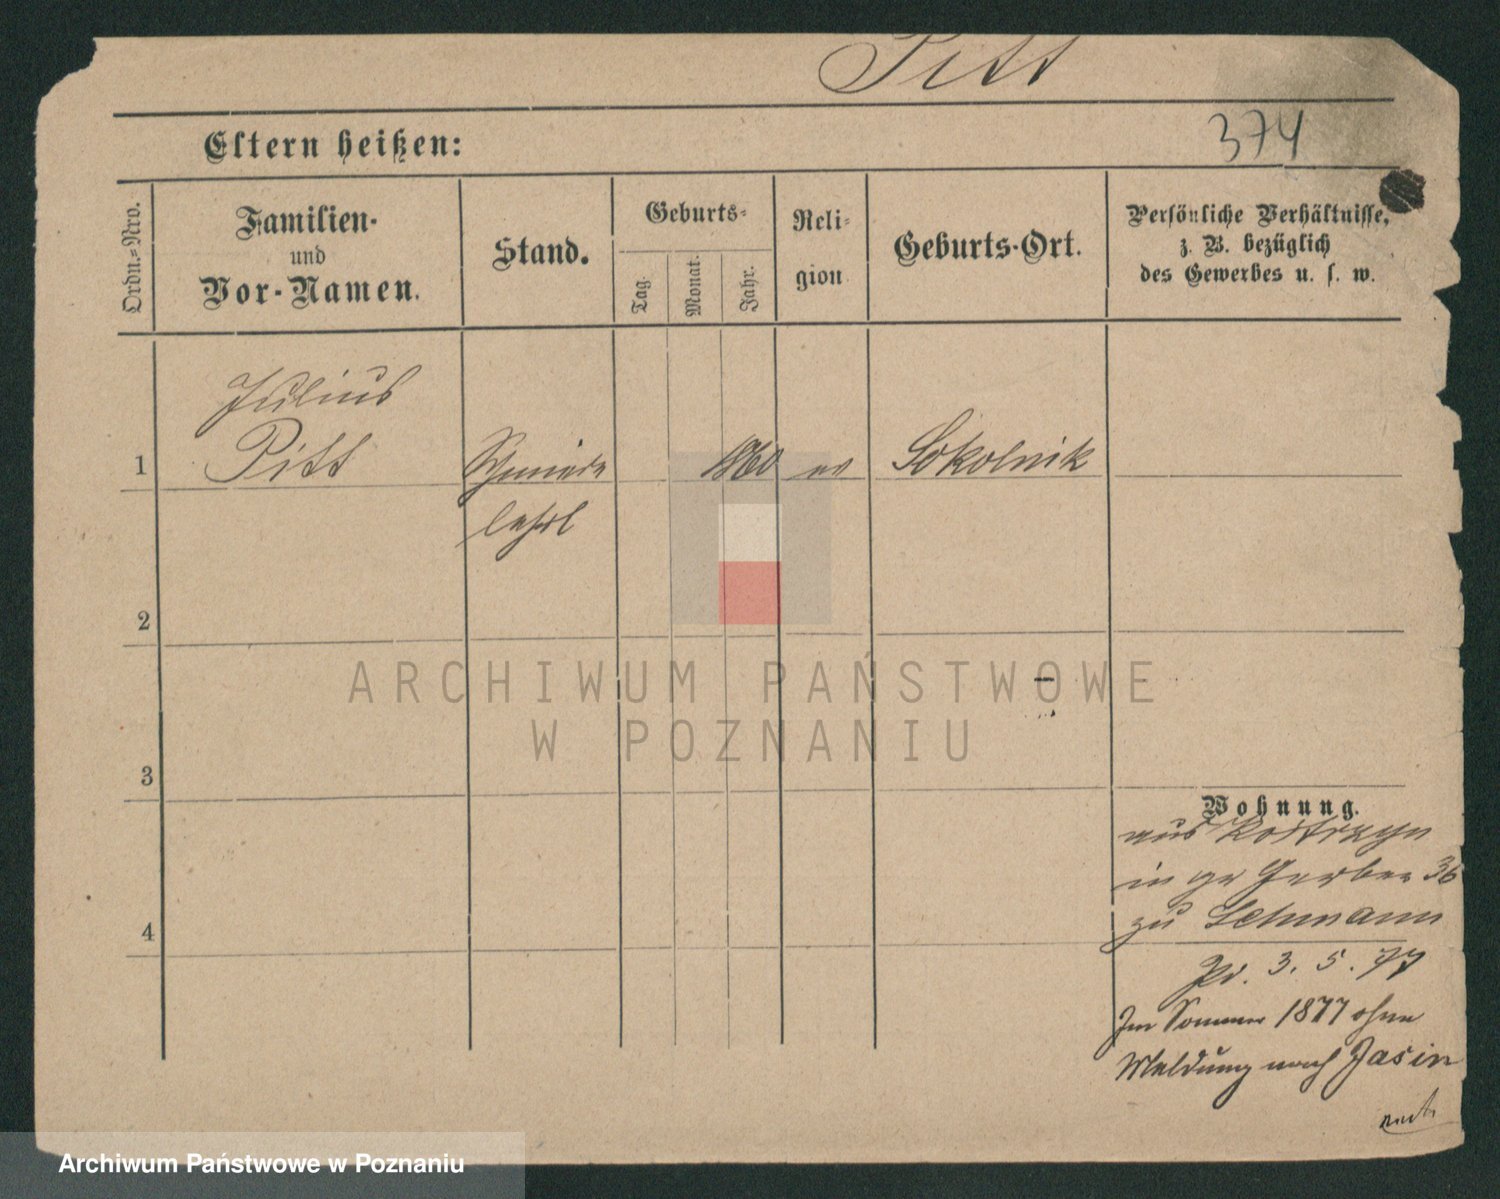 Pitt
Eltern heißen:
374
Ordn.=Nro.
Familien-
und
Vor-Namen.
Stand.
Geburts=
Tag.
Monat.
Jahr.
Reli=
gion
Geburts-Ort.
Persönliche Verhältnisse,
z. B. bezüglich
des Gewerbes u. s. w.
Julius
1 Pitt
1860 ev Sokolnik
lehrl
2
3
4
Wohnung.
aus Kostrzyn
in gr Gerber 36
zu Lehmann
Pr. 3. 5. 77
Im Sommer 1877 ohne
Meldung nach Jasin
ARCHIWUM PAŃSTWOWE
W POZNANIU
Archiwum Państwowe w Poznaniu